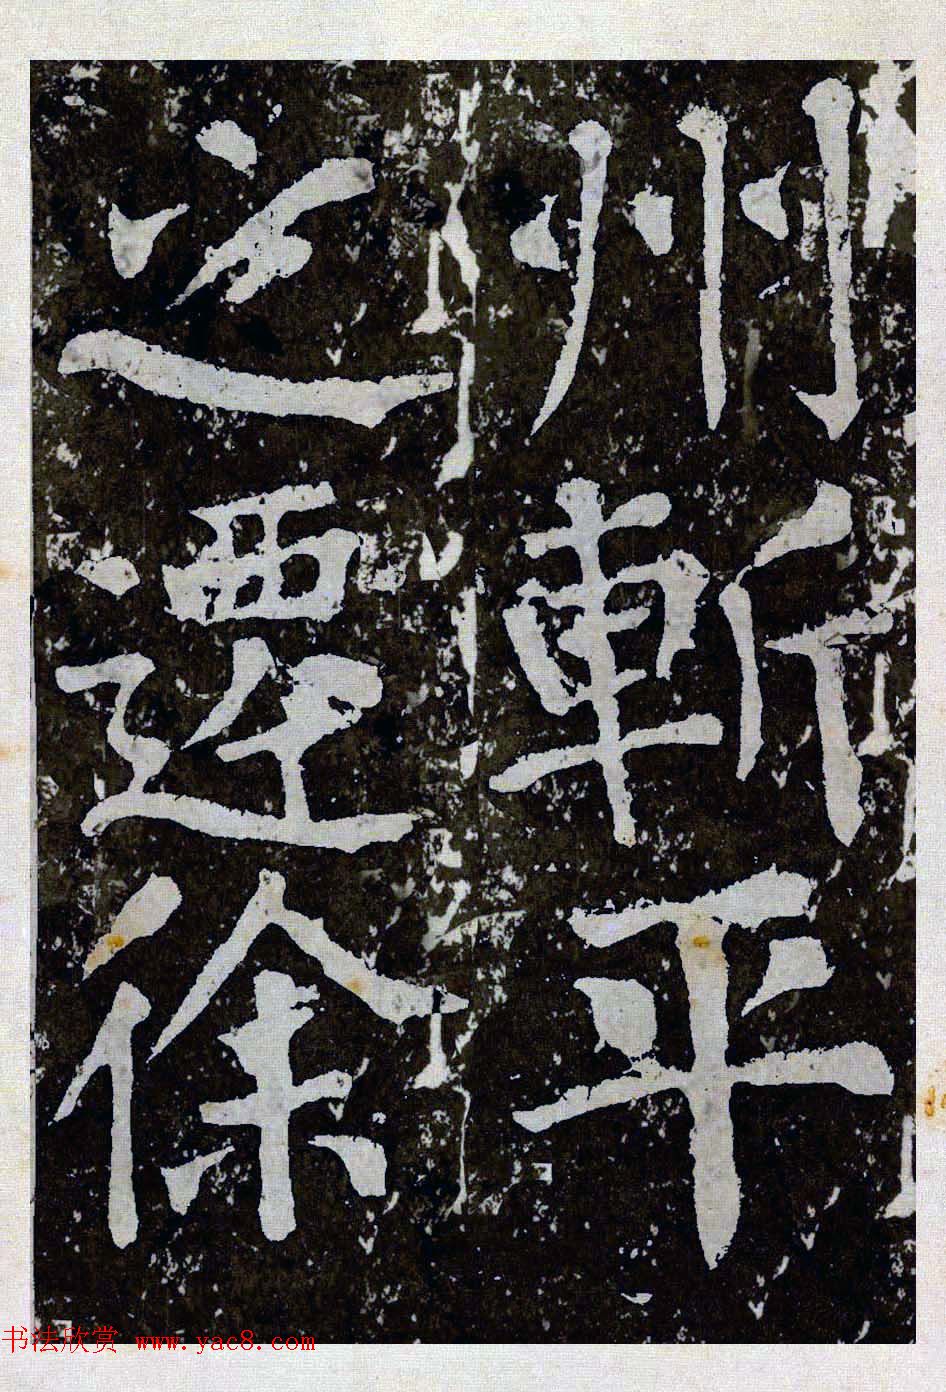 州斬平
之遷徐
书法欣赏 www.yac8.com